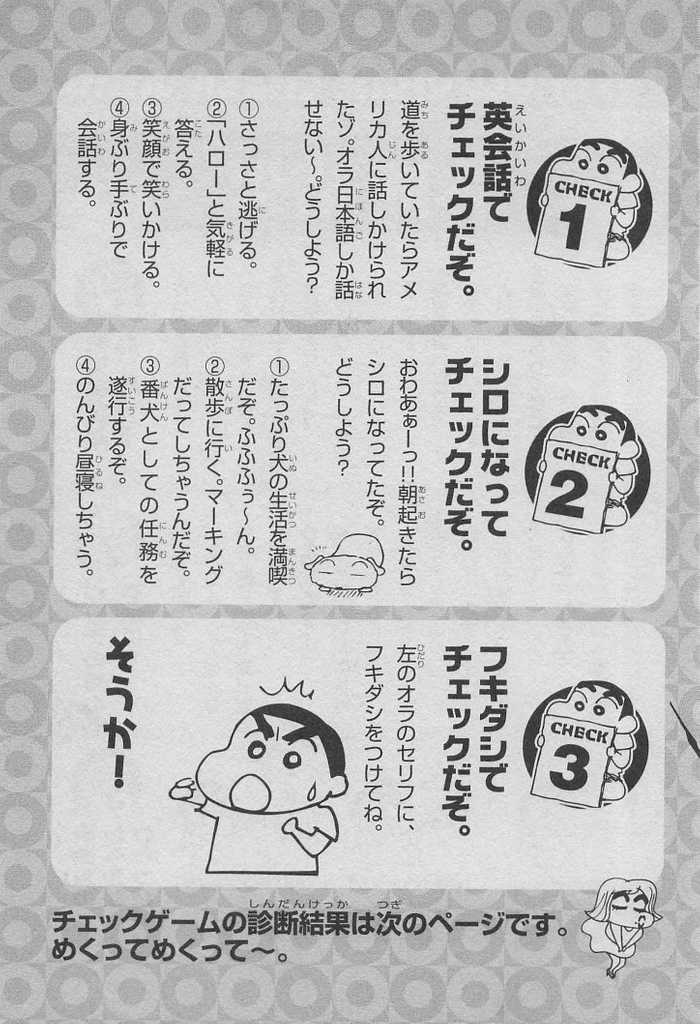 CHECK
1
英会話で
チェックだぞ。
道を歩いていたらアメ
リカ人に話しかけられ
たゾ。オラ日本語しか話
せない〜。どうしよう?
①さっさと逃げる。
②「ハロー」と気軽に
答える。
③笑顔で笑いかける。
④身ぶり手ぶりで
会話する。
CHECK
2
シロになって
チェックだぞ。
おわあぁーっ!!朝起きたら
シロになってたぞ。
どうしよう?
①たっぷり犬の生活を満喫
だぞ。ふふふぅ〜ん。
②散歩に行く。マーキング
だってしちゃうんだぞ。
③番犬としての任務を
遂行するぞ。
④のんびり昼寝しちゃう。
CHECK
3
フキダシで
チェックだぞ。
左のオラのセリフに、
フキダシをつけてね。
そうか!
チェックゲームの診断結果は次のページです。
めくってめくって〜。